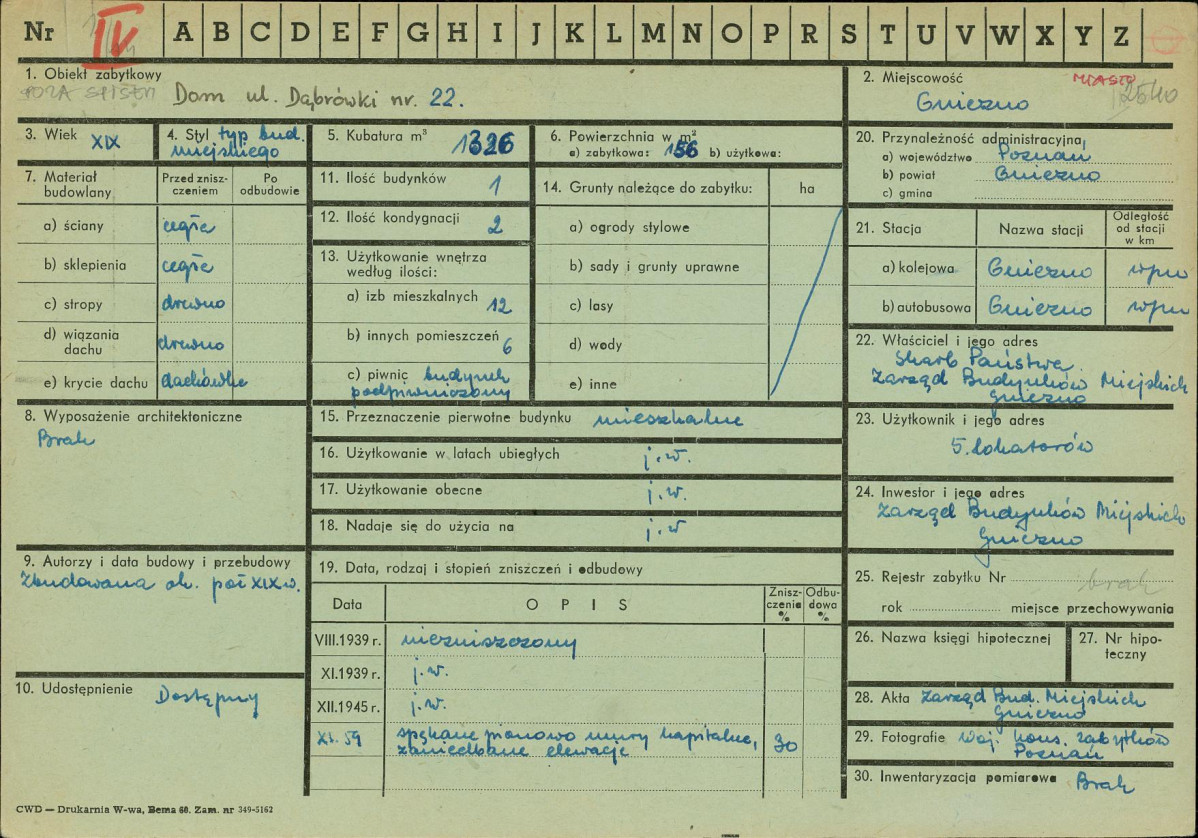 Nr IV A B C D E F G H I J K L M N O P R S T U V W X Y Z
1. Obiekt zabytkowy
POZA SPISEM Dom ul. Dąbrówki nr. 22.
2. Miejscowość MIASTO 2540
Gniezno
3. Wiek XIX
4. Styl typ bud.
miejskiego
5. Kubatura m³ 1326
6. Powierzchnia w m²
a) zabytkowa: 156 b) użytkowa:
7. Materiał budowlany
Przed zniszczeniem
Po odbudowie
a) ściany cegła
b) sklepienia cegła
c) stropy drewno
d) wiązania dachu drewno
e) krycie dachu dachówka
8. Wyposażenie architektoniczne
Brak
9. Autorzy i data budowy i przebudowy
Zbudowana ok. poł XIX w.
10. Udostępnienie Dostępny
11. Ilość budynków 1
12. Ilość kondygnacji 2
13. Użytkowanie wnętrza
według ilości:
a) izb mieszkalnych 12
b) innych pomieszczeń 6
c) piwnic budynek
podpiwniczony
14. Grunty należące do zabytku: ha
a) ogrody stylowe
b) sady i grunty uprawne
c) lasy
d) wody
e) inne
15. Przeznaczenie pierwotne budynku mieszkalne
16. Użytkowanie w latach ubiegłych j.w.
17. Użytkowanie obecne j.w.
18. Nadaje się do użycia na j.w
19. Data, rodzaj i stopień zniszczeń i odbudowy
Data OPIS Zniszczenia % Odbudowa %
VIII.1939 r. niezniszczony
XI.1939 r. j.w.
XII.1945 r. j.w.
XI.59 spękane pionowo mury kapitalne,
zaniedbane elewacje 30
20. Przynależność administracyjna
a) województwo Poznań
b) powiat Gniezno
c) gmina
21. Stacja Nazwa stacji Odległość od stacji w km
a) kolejowa Gniezno wpm
b) autobusowa Gniezno wpm
22. Właściciel i jego adres
Skarb Państwa
Zarząd Budynków Miejskich
Gniezno
23. Użytkownik i jego adres
5. lokatorów
24. Inwestor i jego adres
Zarząd Budynków Miejskich
Gniezno
25. Rejestr zabytku Nr brak
rok miejsce przechowywania
26. Nazwa księgi hipotecznej
27. Nr hipoteczny
28. Akta Zarząd Bud. Miejskich
Gniezno
29. Fotografie Woj. kons. zabytków
Poznań
30. Inwentaryzacja pomiarowa Brak
CWD — Drukarnia W-wa, Bema 60. Zam. nr 349-5162